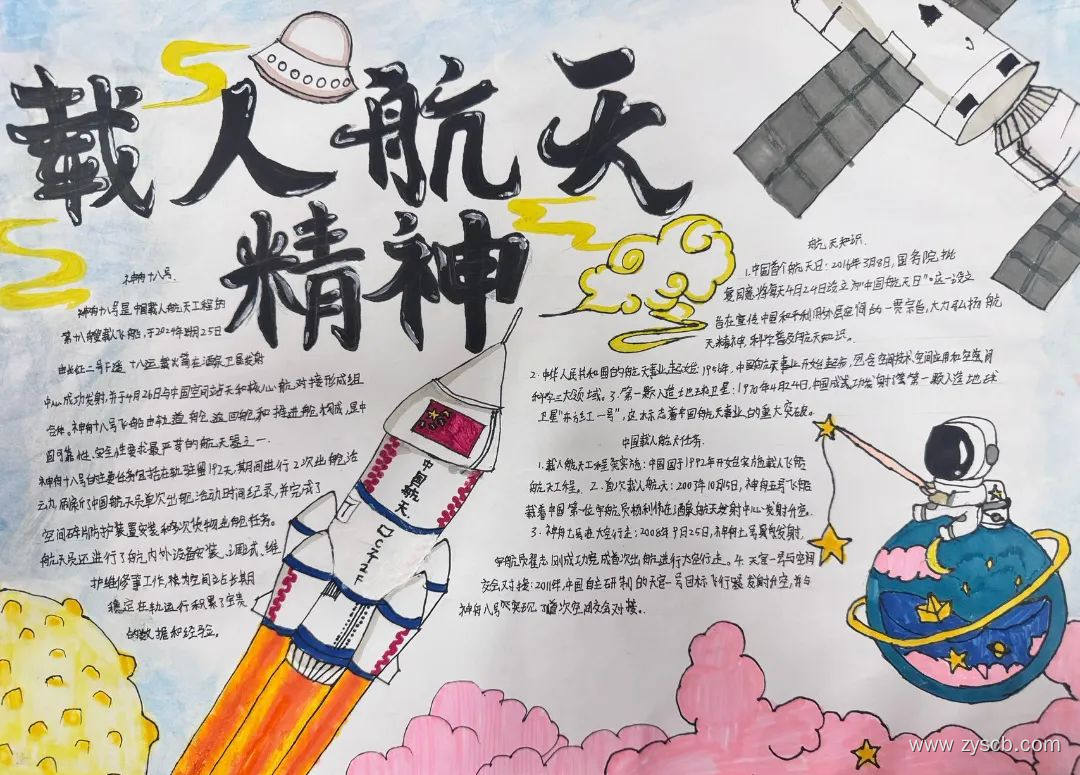 载人航天
精神
神舟十八号
神舟十八号是中国载人航天工程的
第十八艘载人飞船,于2024年4月25日
由长征二号F遥十八运载火箭在酒泉卫星发射
中心成功发射,并于4月26日与中国空间站天和核心舱对接形成组
合体。神舟十八号飞船由轨道舱返回舱和推进舱构成,是中
国可靠性、安全性要求最严苛的航天器之一.
神舟十八号的主要任务包括在轨驻留192天,其间进行2次出舱活
动,刷新了中国航天员单次出舱活动时间纪录,并完成了
空间碎片防护装置安装和多次货物出舱任务。
航天员还进行了舱内外设备安装、调试、维
护维修等工作,为空间站长期
稳定在轨运行积累了宝贵
的数据和经验。
航天知识.
1.中国首个航天日:2016年3月8日,国务院批
复同意将每年4月24日设立为"中国航天日"。这一设立
旨在宣传中国和平利用外层空间的一贯宗旨,大力弘扬航
天精神,科学普及航天知识。
2.中华人民共和国的航天事业起始:1956年,中国航天事业开始起步,包含空间技术空间应用和空间
科学三大领域。3.第一颗人造地球卫星:1970年4月24日,中国成功发射了第一颗人造地球
卫星"东方红一号",这标志着中国航天事业的重大突破。
中国载人航天任务.
1.载人航天工程实施:中国于1992年开始实施载人飞船
航天工程。2.首次载人航天:2003年10月15日,神舟五号飞船
载着中国第一位宇航员杨利伟在酒泉航天发射中心发射升空。
3.神舟七号太空行走:2008年9月25日,神舟七号载人发射,
宇航员翟志刚成功完成首次出舱进行太空行走。4.天宫一号与空间
交会对接:2011年,中国自主研制的天宫一号目标飞行器发射升空,并与
神舟八号实现了首次空间交会对接。
中国航天
CZ-2F
www.zyscb.com